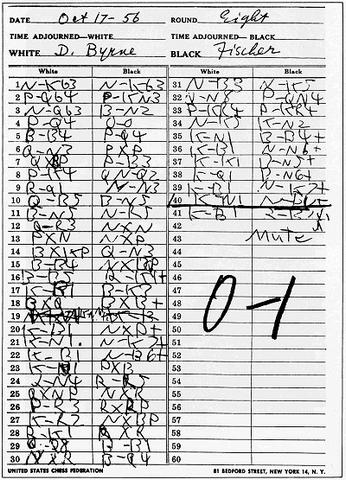 DATE Oct 17-56 ROUND Eight
TIME ADJOURNED—WHITE TIME ADJOURNED—BLACK
WHITE D. Byrne BLACK Fischer
White Black White Black
1 N-KB3 N-KB3
2 P-QB4 P-KN3
3 N-QB3 B-N2
4 P-Q4 O-O
5 B-B4 P-Q4
6 Q-N3 PXP
7 QXBP P-B3
8 P-K4 QN-Q2
9 R-Q1 N-N3
10 Q-B5 B-N5
11 B-N5 N-R5
12 Q-R3 NXN
13 PXN NXP
14 BXKP Q-N3
15 B-B4
16
17 K-B1 B-K3
18 BXQ BXB+
19
20 K-B1 NXP+
21 K-N1 N-K7+
22 K-B1 N-B6+
23 K-N1 PXB
24 R-R5
25
26 P-R3 RXP
27 K-R2 NXBP
28 R-K1 RXR
29
30 NXR B-Q4
31 N-B3 N-K5
32 P-QN4
33 P-KR4 P-KR4
34 N-K5 K-N2
35 K-N1 B-B4+
36 K-B1 N-N6+
37 K-K1
38
39 K-B1 N-K7+
40 K-N1
41 K-B1
42
43 Mate
44
45
46
47
48 0-1
49
50
51
52
53
54
55
56
57
58
59
60
UNITED STATES CHESS FEDERATION 81 BEDFORD STREET, NEW YORK 14, N. Y.